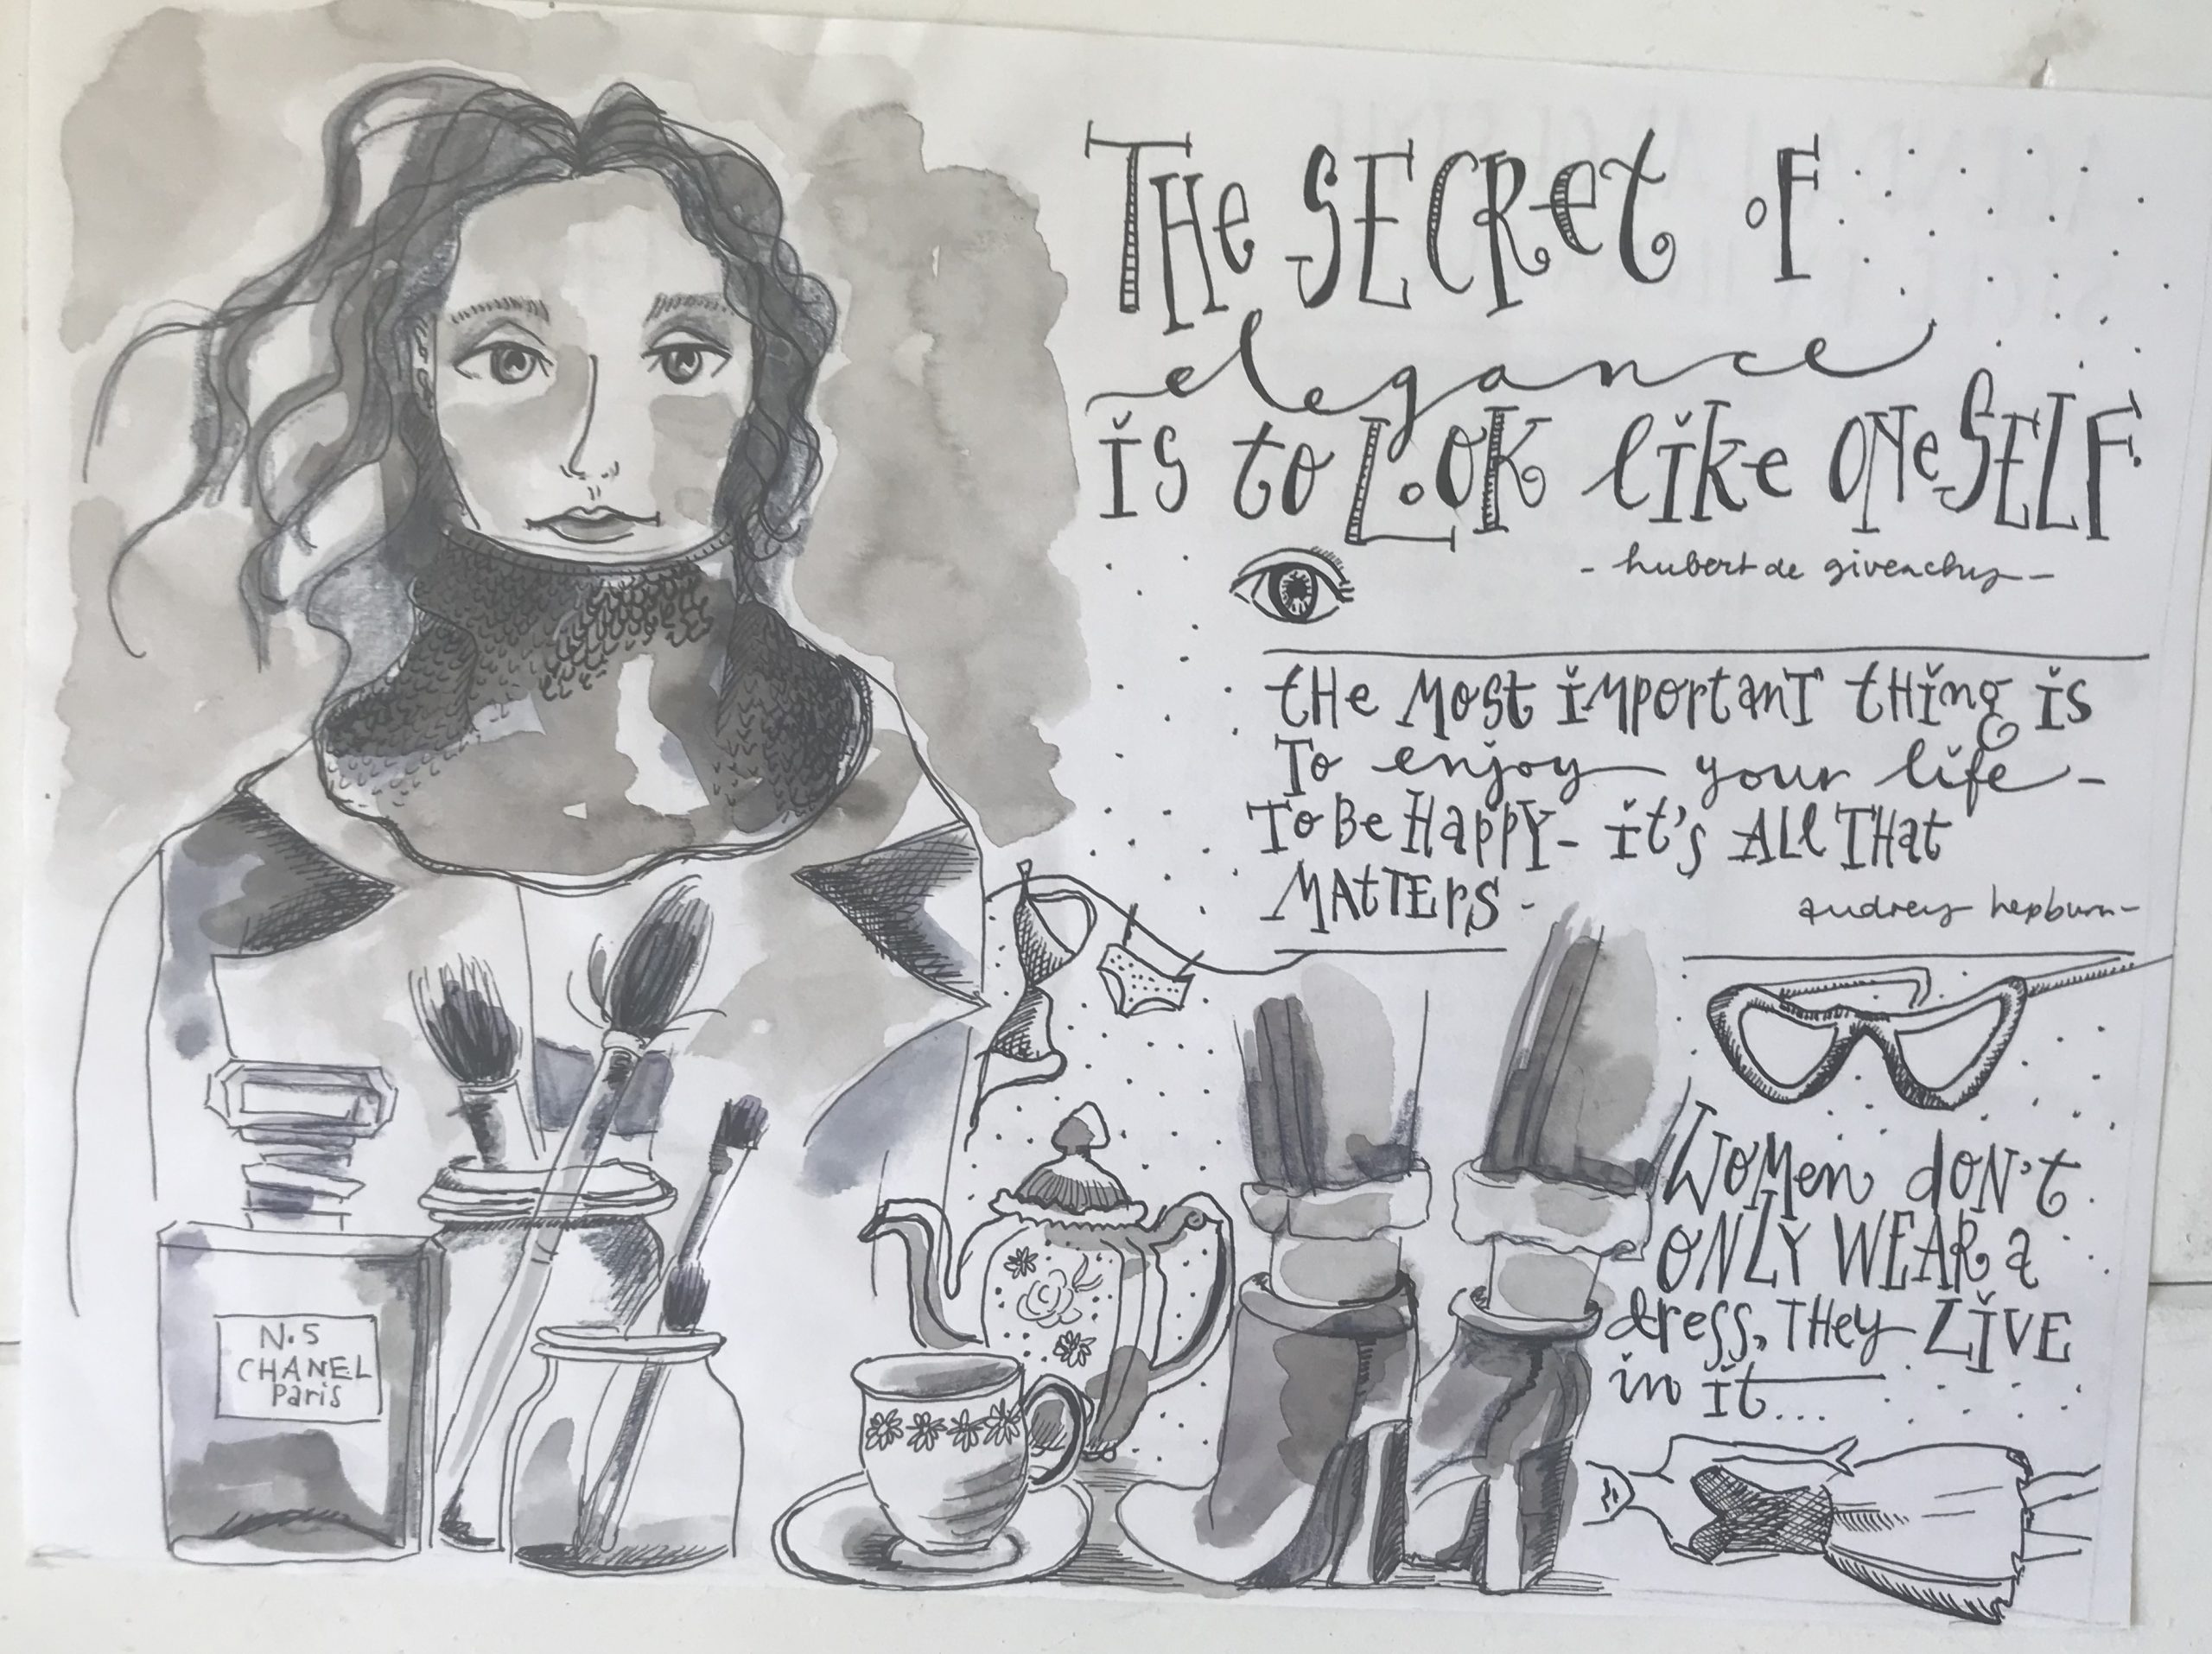 THe SECRet oF
elegance
is to LoOK like ONeSELF
- hubert de givenchy -
tHe Most important tHing is
To enjoy your life -
To Be HappY - it's All THat
MAtTErS -
audrey hepburn -
WoMen doN't
ONLY WEAR a
dress, THey LIVE
in it...
N.5
CHANEL
Paris